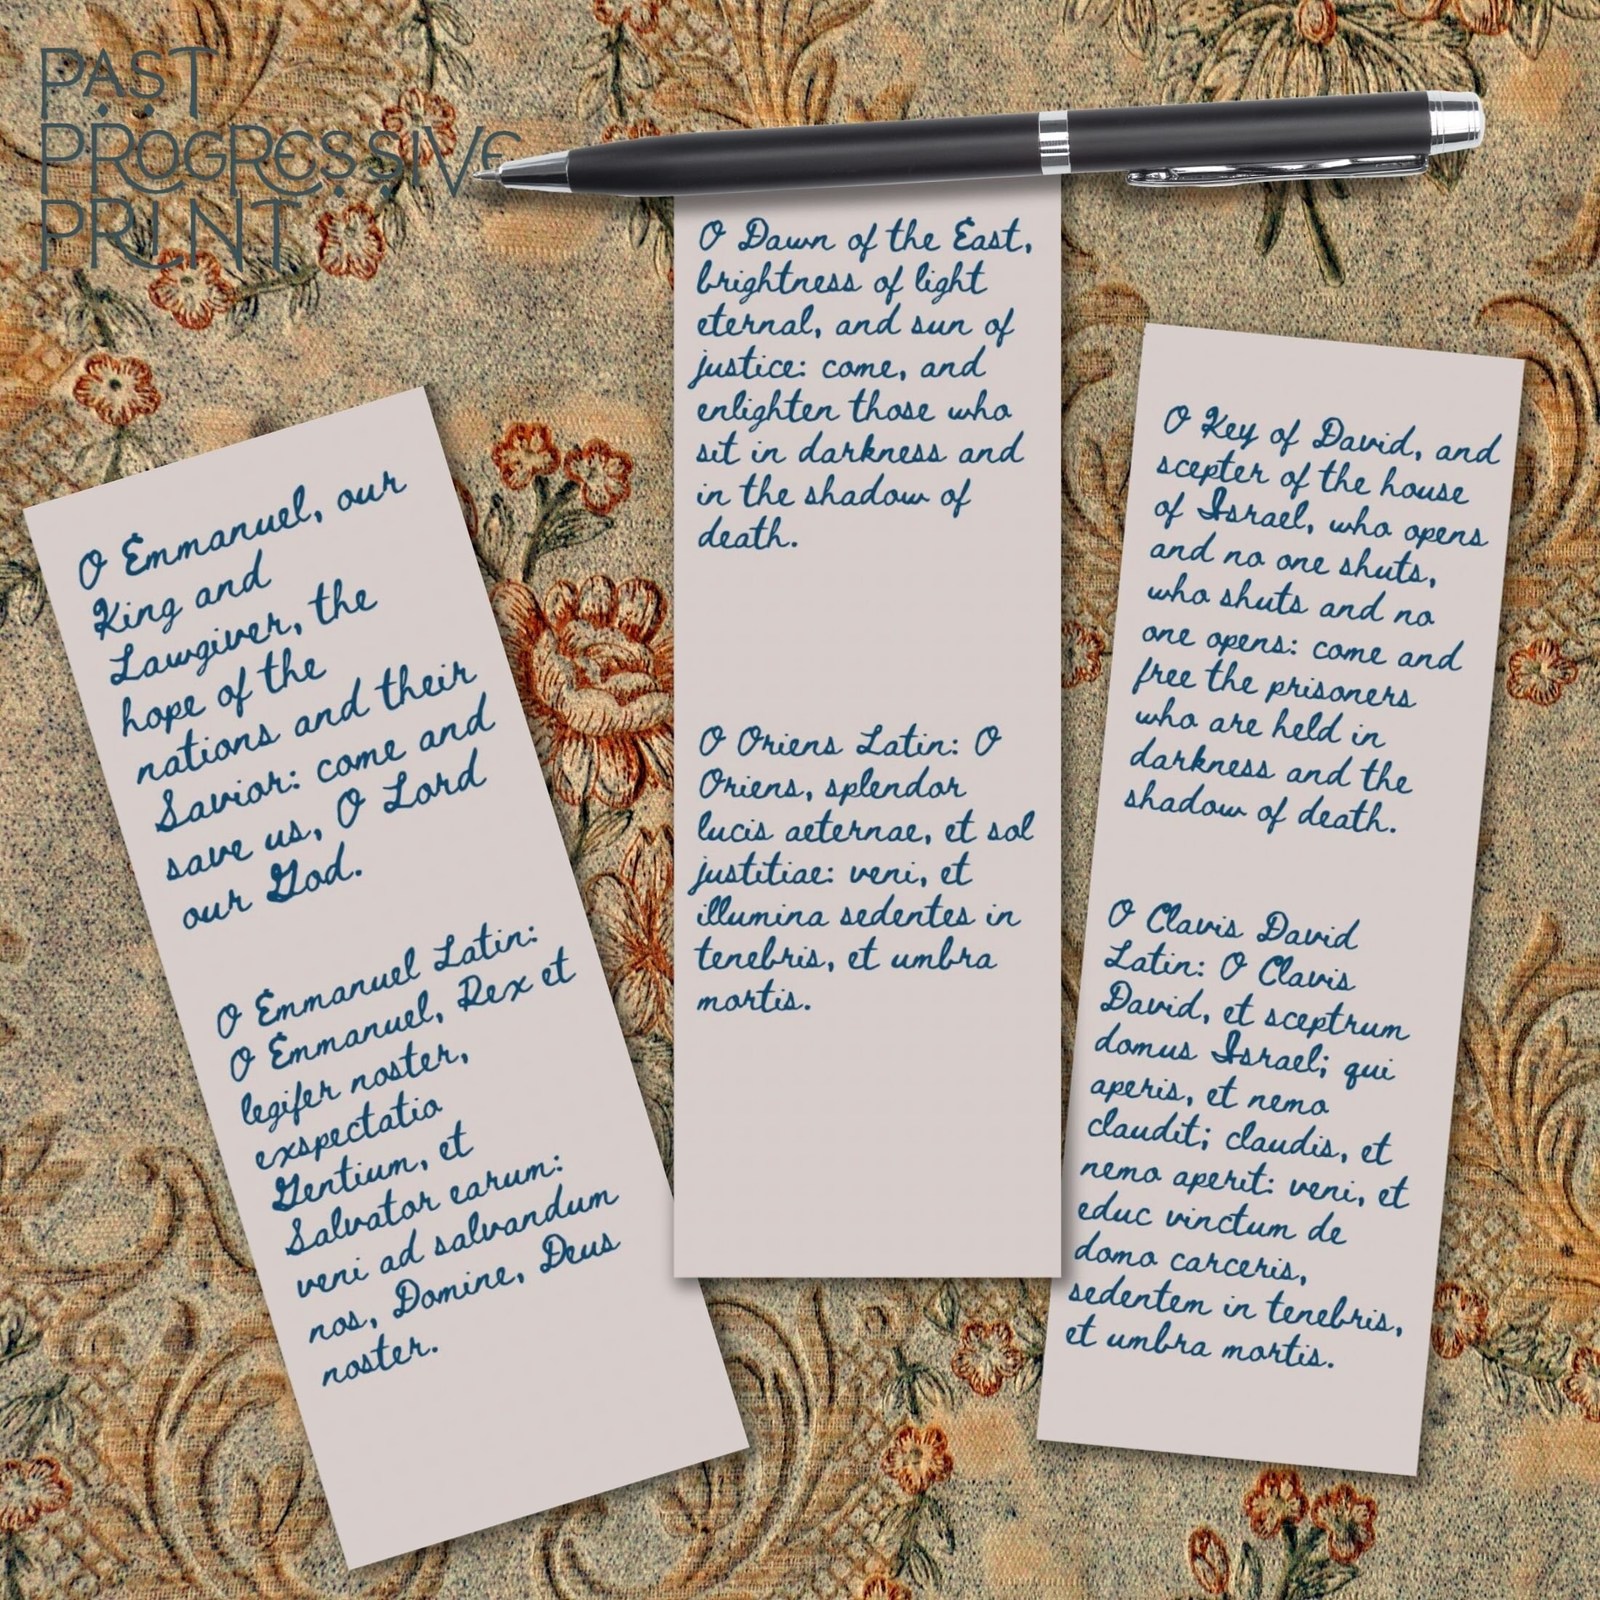 PAST
PROGRESSIVE
PRINT
O Emmanuel, our
King and
Lawgiver, the
hope of the
nations and their
Savior: come and
save us, O Lord
our God.
O Emmanuel Latin:
O Emmanuel, Rex et
legifer noster,
exspectatio
Gentium, et
Salvator earum:
veni ad salvandum
nos, Domine, Deus
noster.
O Dawn of the East,
brightness of light
eternal, and sun of
justice: come, and
enlighten those who
sit in darkness and
in the shadow of
death.
O Oriens Latin: O
Oriens, splendor
lucis aeternae, et sol
justitiae: veni, et
illumina sedentes in
tenebris, et umbra
mortis.
O Key of David, and
scepter of the house
of Israel, who opens
and no one shuts,
who shuts and no
one opens: come and
free the prisoners
who are held in
darkness and the
shadow of death.
O Clavis David
Latin: O Clavis
David, et sceptrum
domus Israel; qui
aperis, et nemo
claudit; claudis, et
nemo aperit: veni, et
educ vinctum de
domo carceris,
sedentem in tenebris,
et umbra mortis.